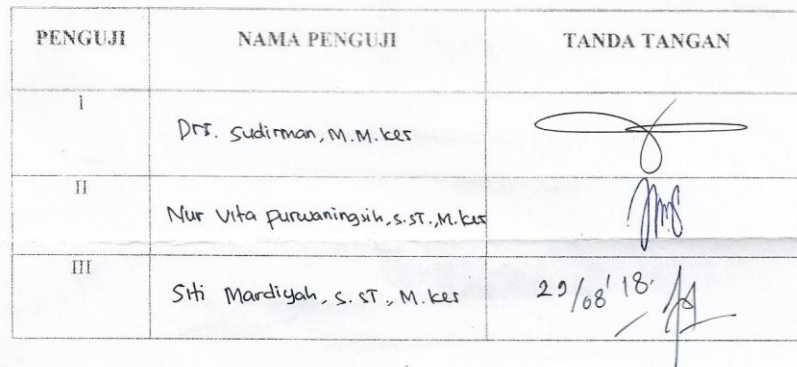 PENGUJI NAMA PENGUJI TANDA TANGAN
I Drs. Sudirman, M.M.Kes
II Nur Vita Purwaningsih, S.ST., M.Kes
III Siti Mardiyah, S.ST., M.Kes 29/08'18.